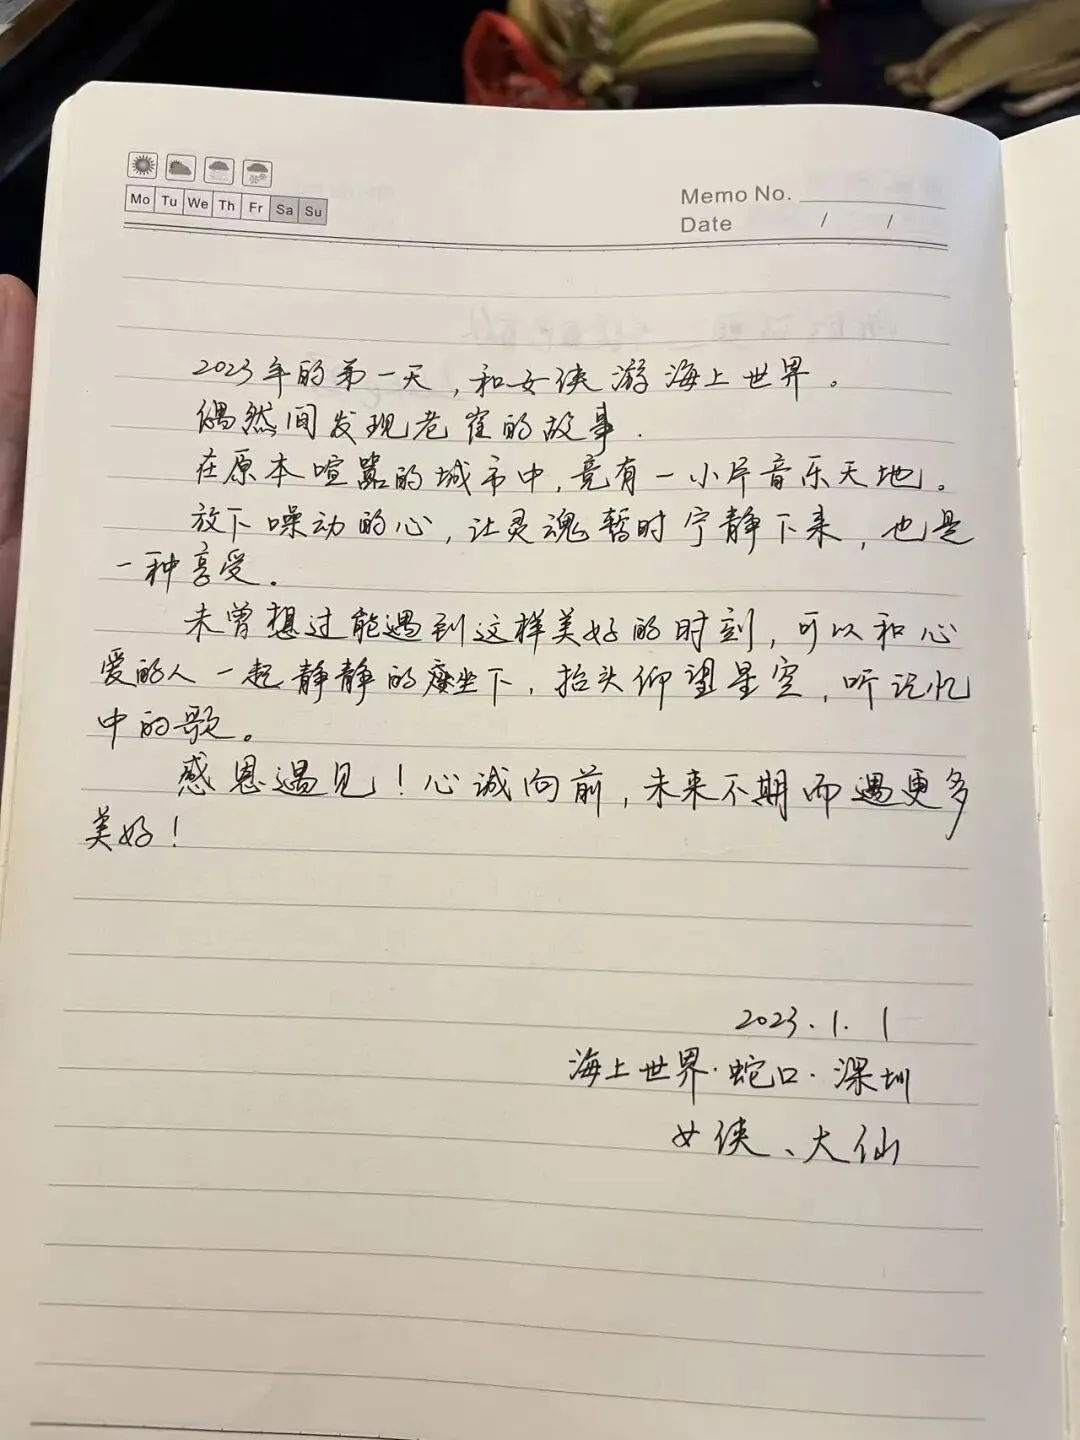 Mo Tu We Th Fr Sa Su
Memo No.
Date / /
2023年的第一天，和女侠游海上世界。
偶然间发现老崔的故事.
在原本喧嚣的城市中,竟有一小片音乐天地。
放下噪动的心,让灵魂暂时宁静下来,也是
一种享受。
未曾想过能遇到这样美好的时刻,可以和心
爱的人一起静静的座坐下,抬头仰望星空,听记忆
中的歌。
感恩遇见!心诚向前,未来不期而遇更多
美好!
2023.1.1
海上世界·蛇口·深圳
女侠、大仙